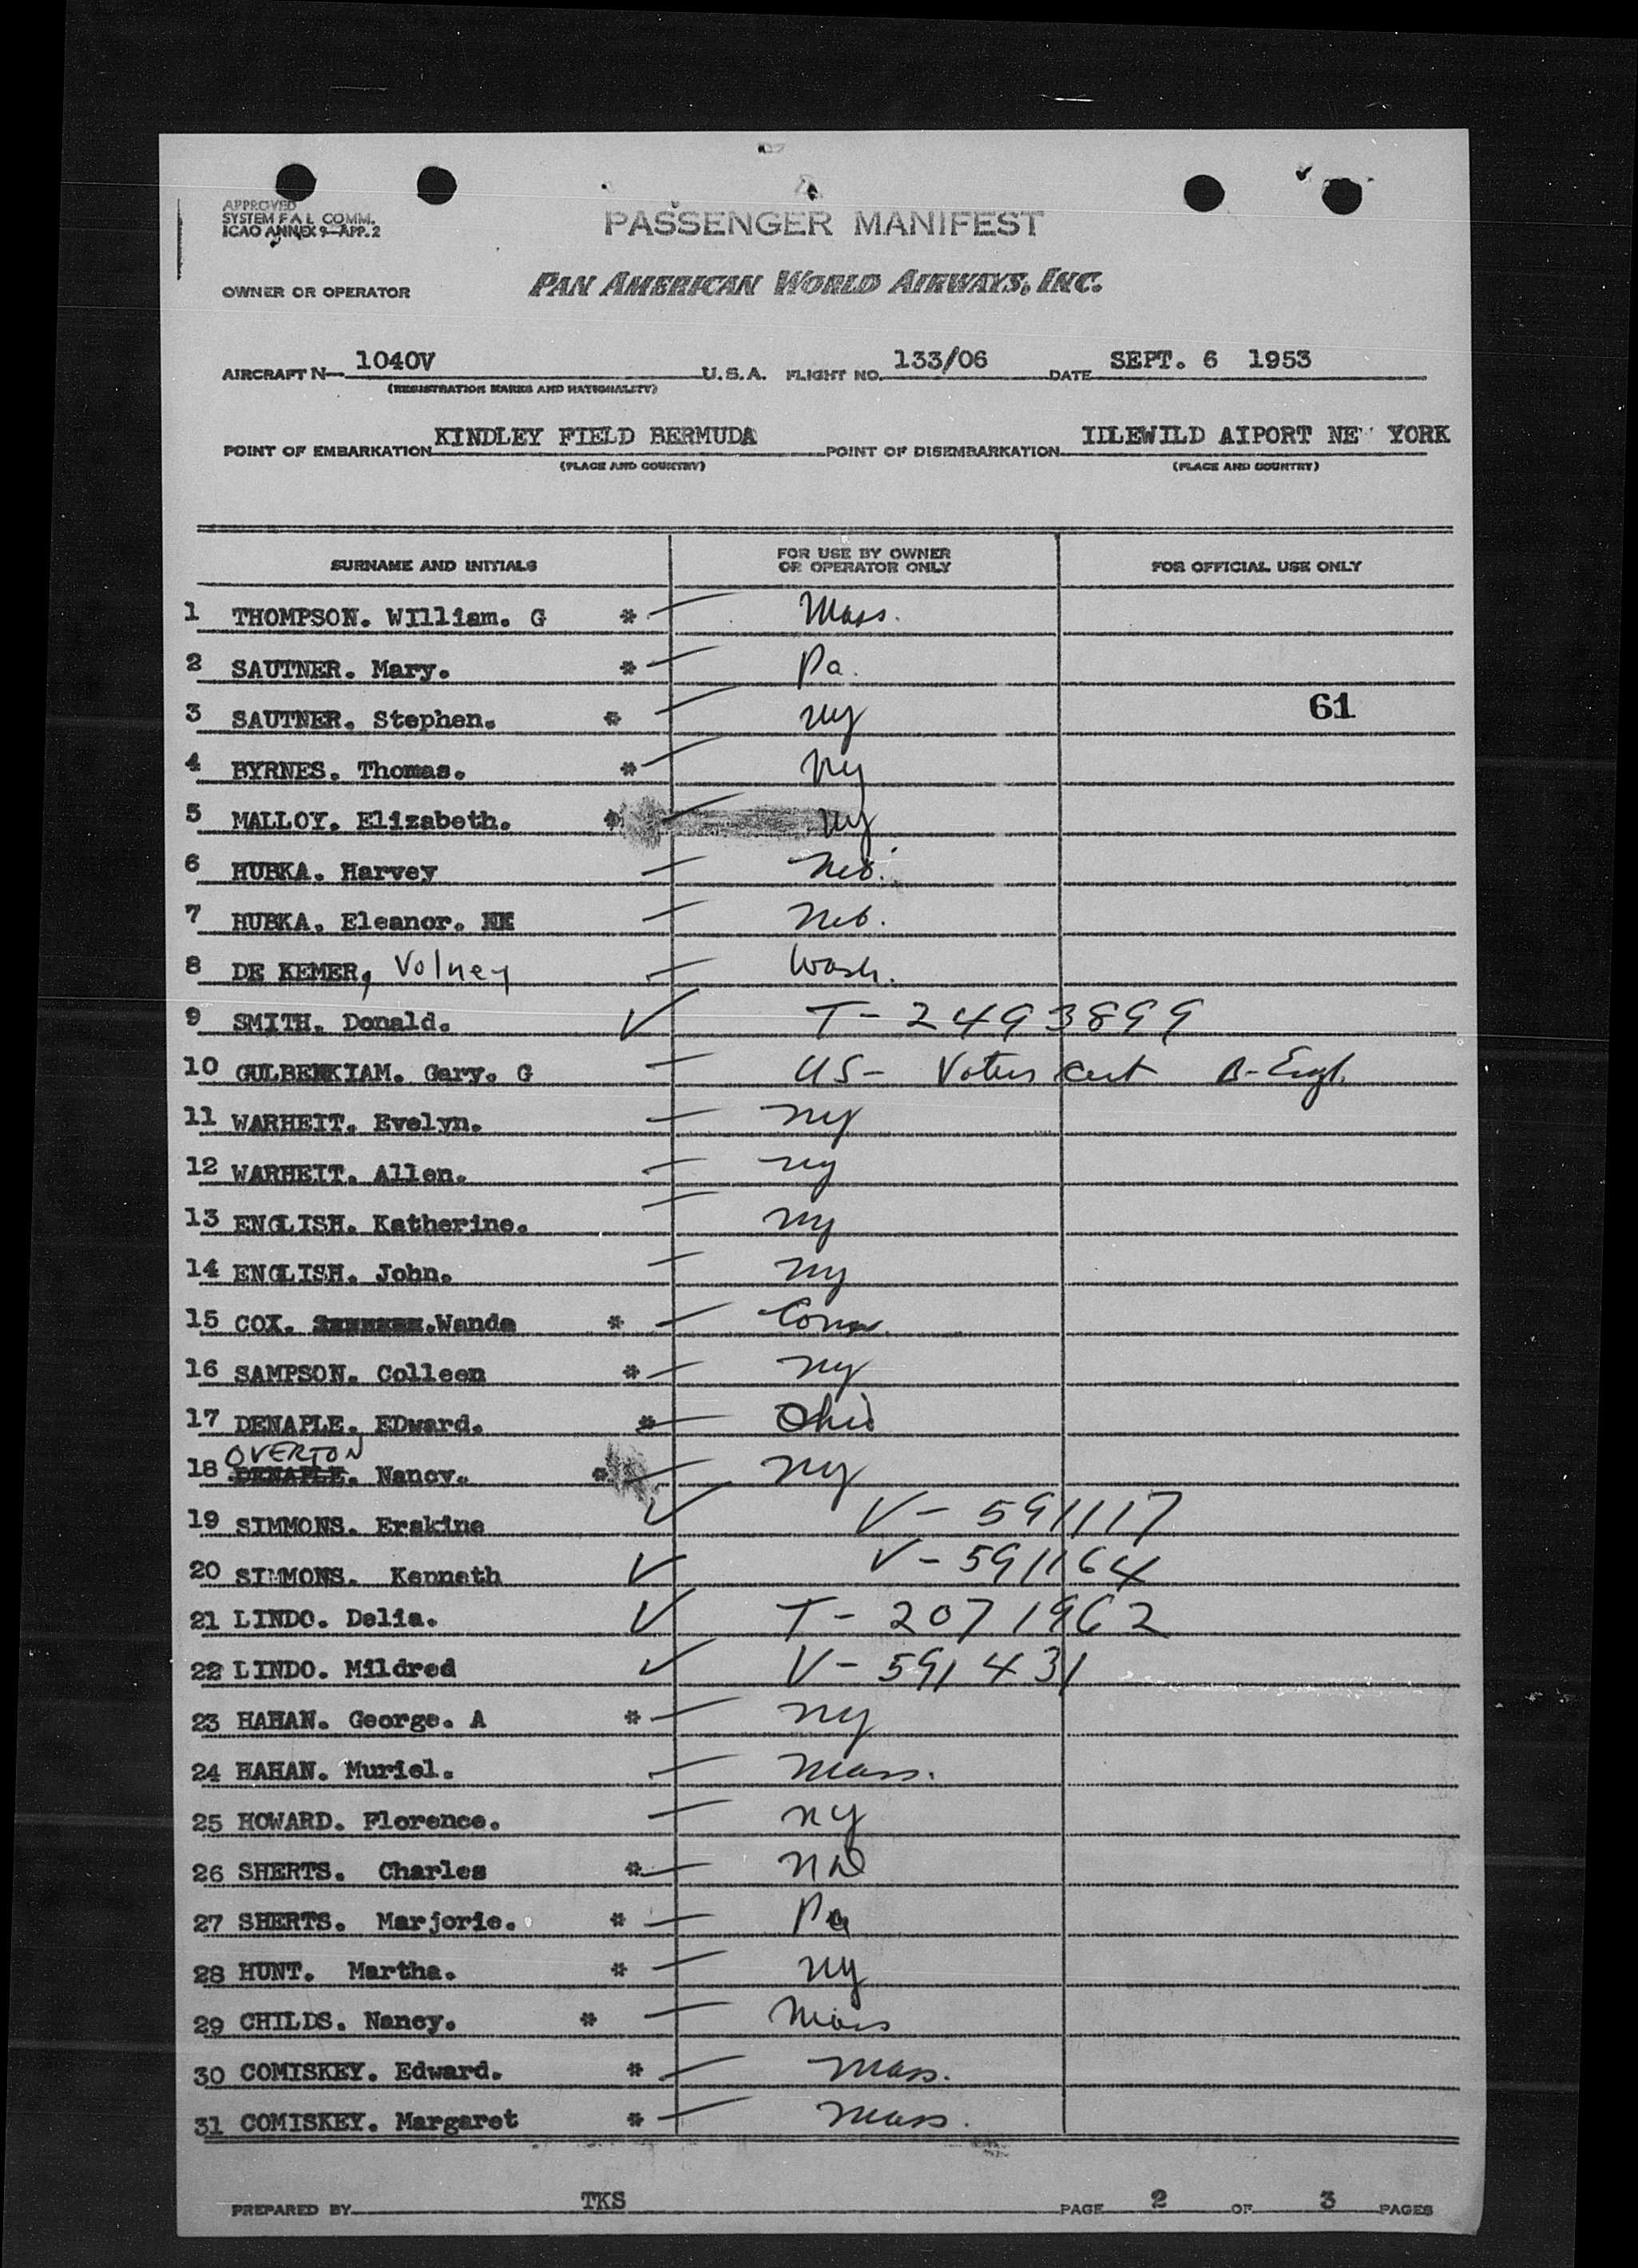 APPROVED
SYSTEM F A L COMM.
ICAO ANNEX 9-APP. 2
PASSENGER MANIFEST
OWNER OR OPERATOR PAN AMERICAN WORLD AIRWAYS, INC.
AIRCRAFT N- 1040V U.S.A. FLIGHT NO. 133/06 DATE SEPT. 6 1953
(REGISTRATION MARKS AND NATIONALITY)
POINT OF EMBARKATION KINDLEY FIELD BERMUDA POINT OF DISEMBARKATION IDLEWILD AIPORT NE YORK
(PLACE AND COUNTRY) (PLACE AND COUNTRY)
SURNAME AND INITIALS FOR USE BY OWNER OR OPERATOR ONLY FOR OFFICIAL USE ONLY
1 THOMPSON. WIlliam. G * Mass.
2 SAUTNER. Mary. * Pa.
3 SAUTNER. Stephen. * ny 61
4 BYRNES. Thomas. * ny
5 MALLOY. Elizabeth. * ny
6 HUBKA. Harvey Neb.
7 HUBKA. Eleanor. Neb.
8 DE KEMER, Volney Wash.
9 SMITH. Donald. ✓ T-2493899
10 GULBENKIAM. Gary. G US- Voters cert B-Engl.
11 WARHEIT. Evelyn. ny
12 WARHEIT. Allen. ny
13 ENGLISH. Katherine. ny
14 ENGLISH. John. ny
15 COX. .Wanda * Conn.
16 SAMPSON. Colleen * ny
17 DENAPLE. EDward. * Ohio
OVERTON
18 DENAPLE. Nancy. * ny
19 SIMMONS. Erskine ✓ V-591117
20 SIMMONS. Kenneth ✓ V-591164
21 LINDO. Delia. ✓ T-2071962
22 LINDO. Mildred ✓ V-591431
23 HAHAN. George. A * ny
24 HAHAN. Muriel. Mass.
25 HOWARD. Florence. ny
26 SHERTS. Charles *
27 SHERTS. Marjorie. * Pa
28 HUNT. Martha. * ny
29 CHILDS. Nancy. * Mass
30 COMISKEY. Edward. * Mass.
31 COMISKEY. Margaret * Mass.
PREPARED BY TKS PAGE 2 OF 3 PAGES